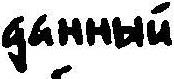 данный